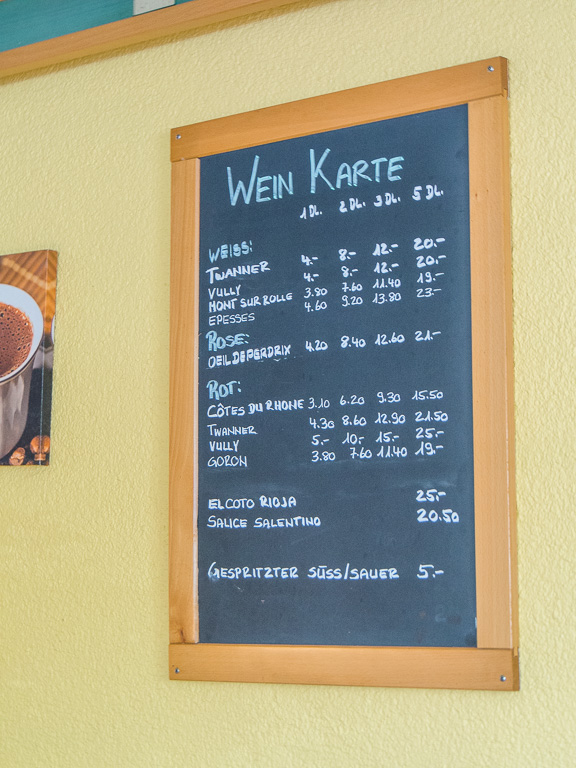 WEIN KARTE
1 DL. 2 DL. 3 DL. 5 DL.
WEISS:
TWANNER 4.- 8.- 12.- 20.-
VULLY 4.- 8.- 12.- 20.-
MONT SUR ROLLE 3.80 7.60 11.40 19.-
EPESSES 4.60 9.20 13.80 23.-
ROSE:
OEIL DE PERDRIX 4.20 8.40 12.60 21.-
ROT:
CÔTES DU RHONE 3.10 6.20 9.30 15.50
TWANNER 4.30 8.60 12.90 21.50
VULLY 5.- 10.- 15.- 25.-
GORON 3.80 7.60 11.40 19.-
EL COTO RIOJA 25.-
SALICE SALENTINO 20.50
GESPRITZTER SÜSS/SAUER 5.-